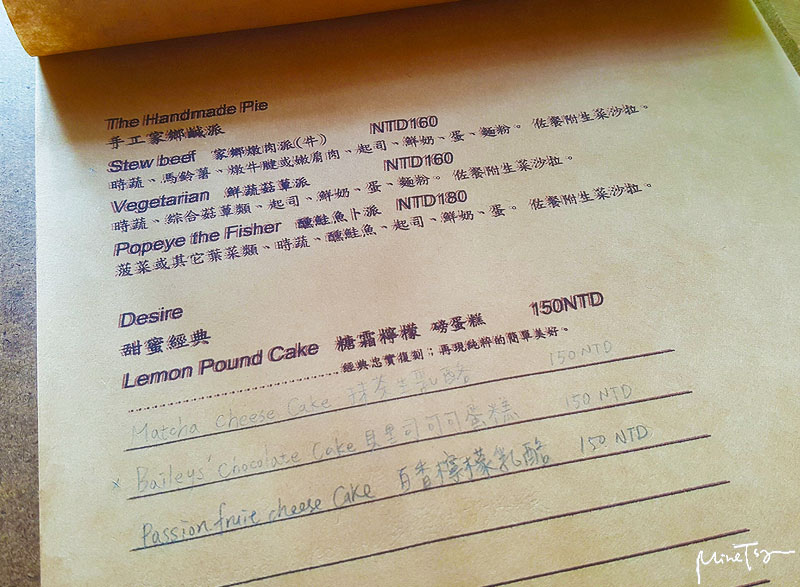 The Handmade Pie
手工家鄉鹹派
Stew beef 家鄉燉肉派(牛) NTD160
時蔬、馬鈴薯、燉牛腱或嫩肩肉、起司、鮮奶、蛋、麵粉。 佐餐附生菜沙拉。
Vegetarian 鮮蔬菇蕈派 NTD160
時蔬、綜合菇蕈類、起司、鮮奶、蛋、麵粉。 佐餐附生菜沙拉。
Popeye the Fisher 醺鮭魚卜派 NTD180
菠菜或其它葉菜類、時蔬、醺鮭魚、起司、鮮奶、蛋。 佐餐附生菜沙拉。
Desire
甜蜜經典
Lemon Pound Cake 糖霜檸檬 磅蛋糕 150NTD
經典忠實復刻；再現純粹的簡單美好。
Matcha Cheese Cake 抹茶生乳酪 150 NTD
x Baileys' Chocolate Cake 貝里可可可蛋糕 150 NTD
Passion fruit cheese Cake 百香檸檬乳酪 150 NTD